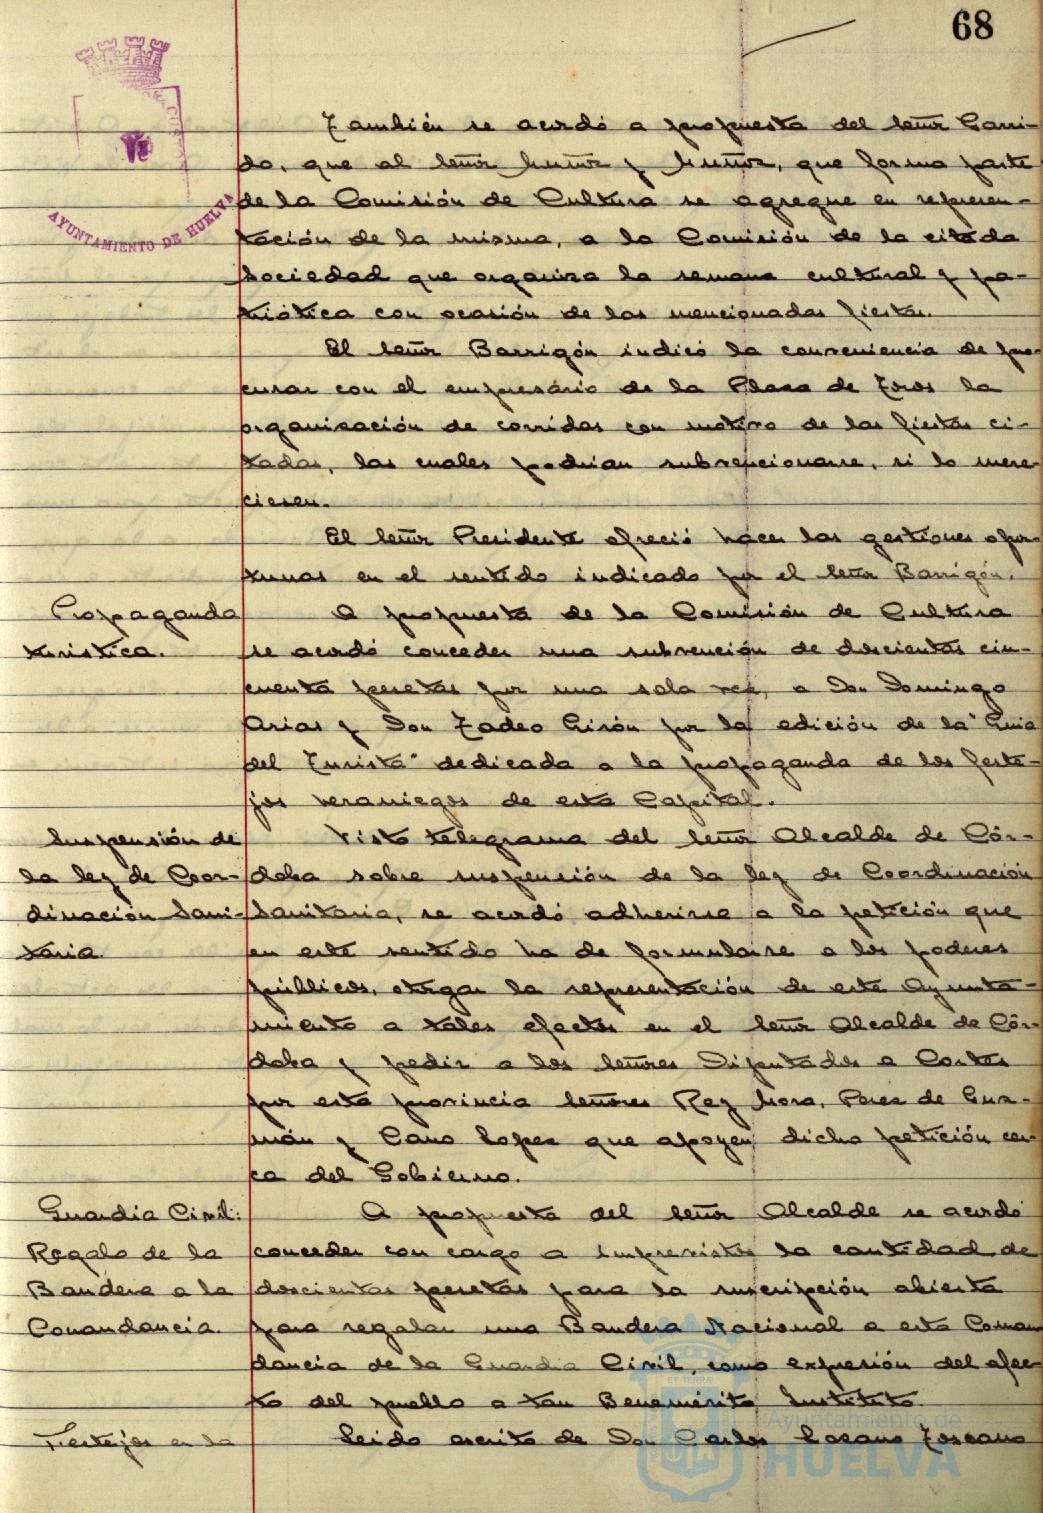 68
AYUNTAMIENTO DE HUELVA
También se acordó a propuesta del señor Garri-
do, que al señor Muñoz y Muñoz, que forma parte
de la Comisión de Cultura se agregue en represen-
tación de la misma, a la Comisión de la citada
Sociedad que organiza la semana cultural y pa-
triótica con ocasión de las mencionadas fiestas.
El señor Barrigón indicó la conveniencia de pro-
curar con el empresário de la Plaza de Toros la
organización de corridas con motivo de las fiestas ci-
tadas, las cuales podrian subvencionarse, si lo mere-
ciesen.
El señor Presidente ofreció hacer las gestiones opor-
tunas en el sentido indicado por el señor Barrigón.
Propaganda
turística.
A propuesta de la Comisión de Cultura
se acordó conceder una subvención de doscientas cin-
cuenta pesetas por una sola vez, a Don Domingo
Arias y Don Tadeo Girón por la edición de la "Guia
del Turista" dedicada a la propaganda de los feste-
jos veraniegos de esta Capital.
Suspensión de
la ley de Coor-
dinación Sani-
taria.
Visto telegrama del señor Alcalde de Cór-
doba sobre suspensión de la ley de Coordinación
Sanitaria, se acordó adherirse a la petición que
en este sentido ha de formularse a los poderes
públicos, otorgar la representación de este Ayunta-
miento a tales efectos en el señor Alcalde de Cór-
doba y pedir a los señores Diputados a Cortes
por esta provincia señores Rey Mora, Perez de Guz-
mán y Cano Lopez que apoyen dicha petición cer-
ca del Gobierno.
Guardia Civil:
Regalo de la
Bandera a la
Comandancia.
A propuesta del señor Alcalde se acordó
conceder con cargo a imprevistos la cantidad de
doscientas pesetas para la suscripción abierta
para regalar una Bandera Nacional a esta Coman-
dancia de la Guardia Civil, como expresión del afec-
to del pueblo a tan Benemérito Instituto.
Festejos en la
Leido escrito de Don Carlos Lozano Toscano
Ayuntamiento de
HUELVA